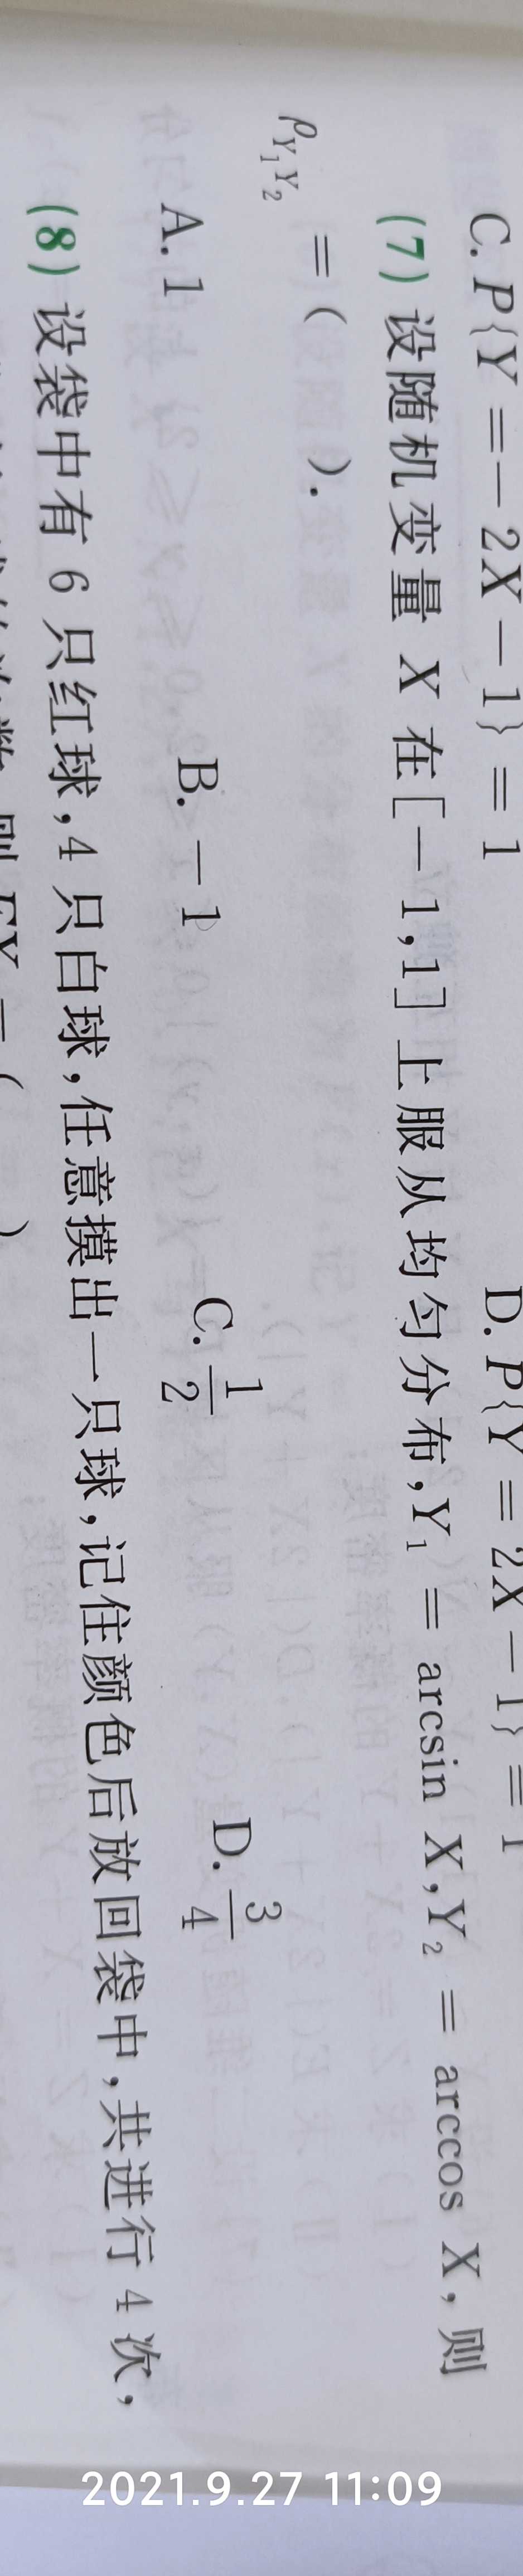 C. P{Y =− 2X − 1} = 1 D. P{Y = 2X − 1} = 1
(7) 设随机变量 X 在[− 1,1] 上服从均匀分布,Y₁ = arcsin X,Y₂ = arccos X, 则
ρ_{Y₁Y₂} = ( ).
A. 1 B. − 1 C. 1/2 D. 3/4
(8) 设袋中有 6 只红球,4 只白球,任意摸出一只球,记住颜色后放回袋中,共进行 4 次,
数,则 EX = ( )
2021.9.27 11:09